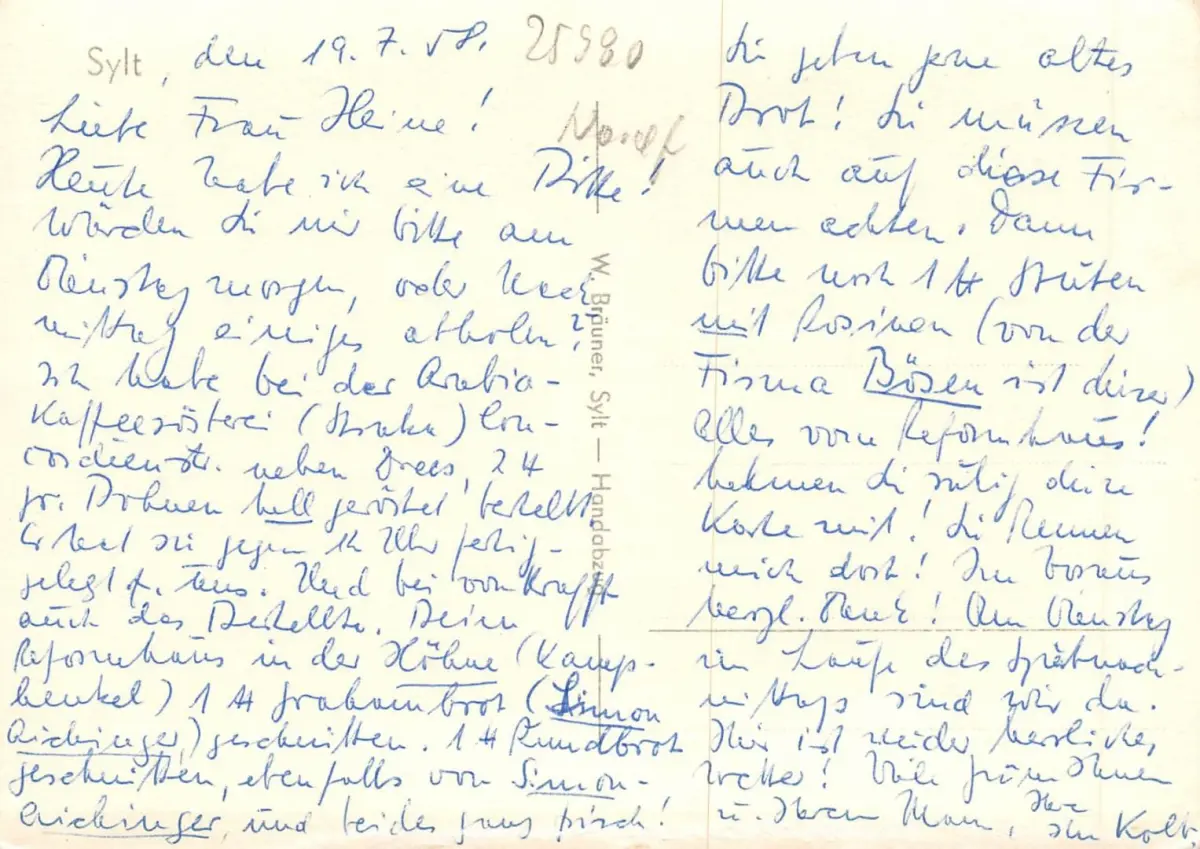 Sylt, den 19.7.58.
25980
Liebe Frau Heine!
Heute habe ich eine Bitte!
Würden Sie mir bitte am
Dienstag morgen, oder Nach
mittag einiges abholen?
Ich habe bei der Arabia-
Kaffeerösterei (Straka) Con-
cordienstr. neben Drees, 2 ℔
gr. Bohnen hell geröstet bestellt
Er hat sie gegen Uhr fertig-
gelegt f. uns. Und bei von Krafft
auch das Bestellte. Beim
Reformhaus in der Höhne (Kamp-
henkel) 1 ℔ Grahambrot (Simon
Aichinger) geschnitten. 1 ℔ Rundbrot
geschnitten, ebenfalls von Simon-
Aichinger, und beides ganz frisch!
W. Bräuner, Sylt — Handabzug
Sie geben gerne altes
Brot! Sie müssen
auch auf diese Fir-
men achten. Dann
bitte noch 1 ℔ Stuten
mit Rosinen (von der
Firma Bösen ist dieser)
alles vom Reformhaus!
Nehmen Sie ruhig diese
Karte mit! Sie kennen
mich dort! Im Voraus
herzl. Dank! Am Dienstag
im Laufe des Spätnach-
mittags sind wir da.
Hier ist wieder herrliches
Wetter! Viele Grüße Ihnen
u. Ihrem Mann, Ihre Kolb